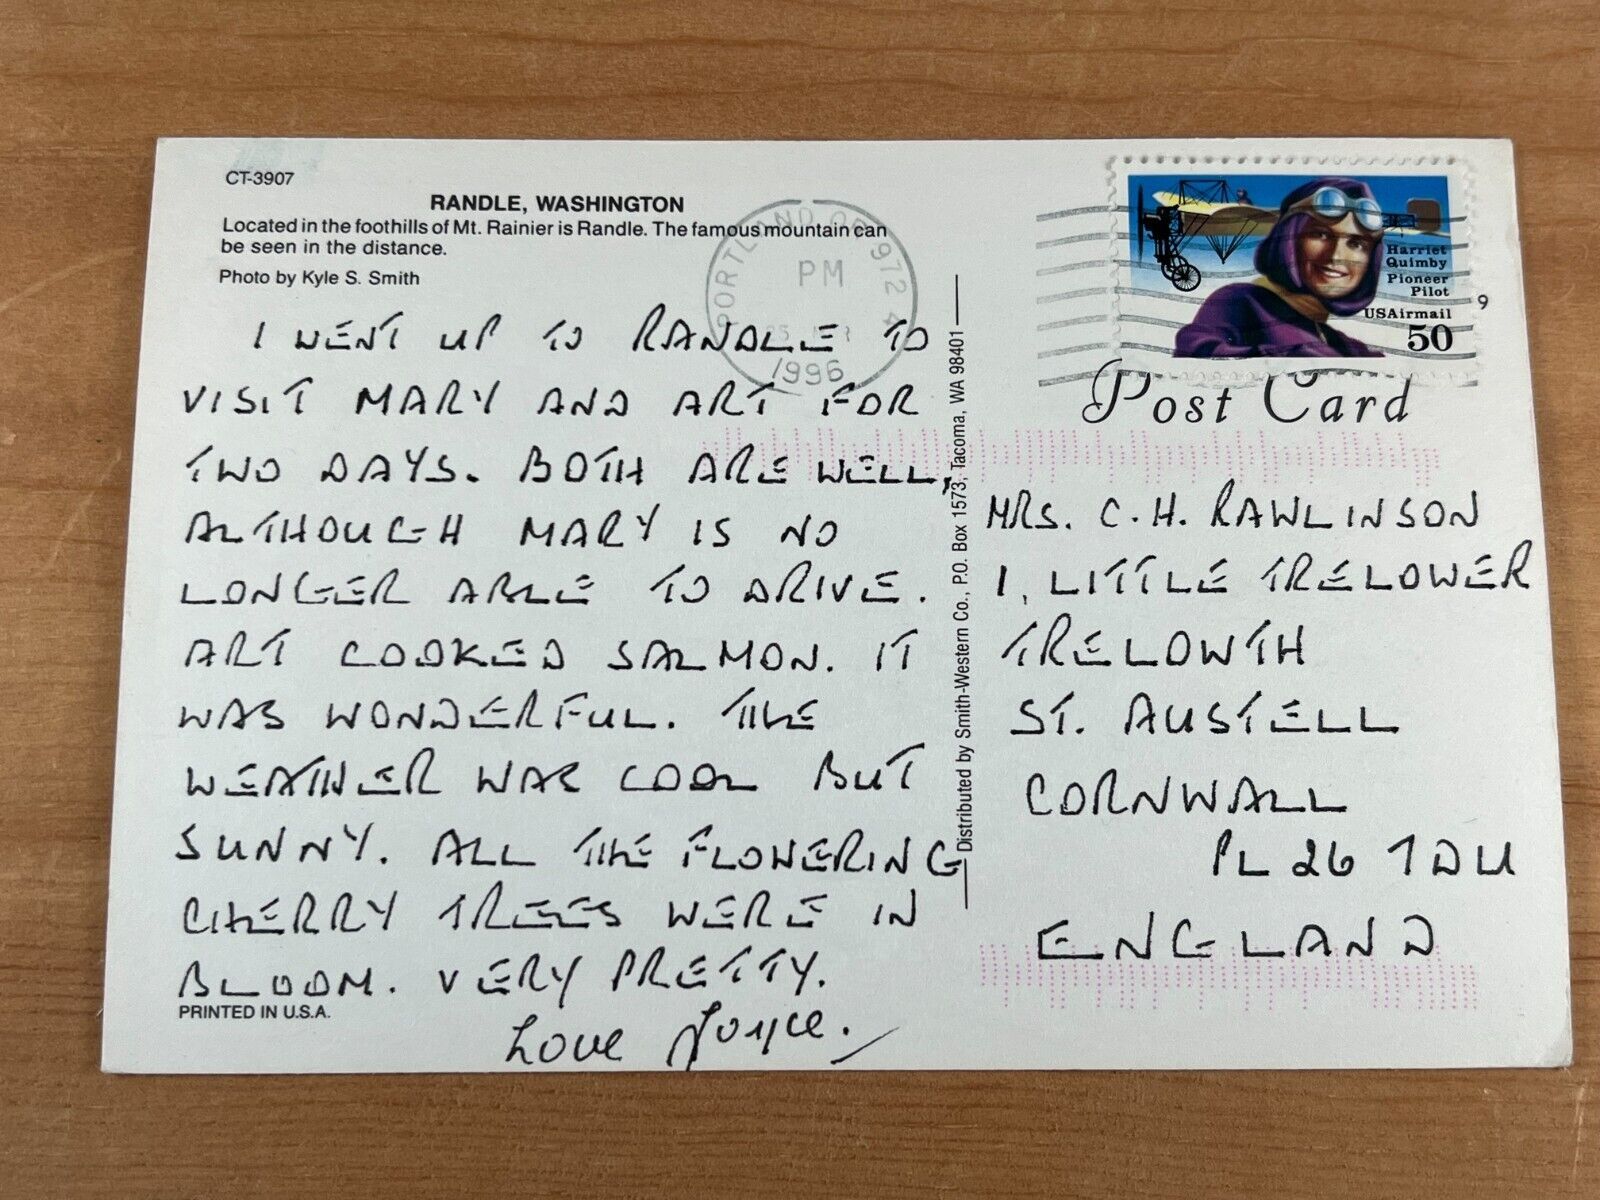 CT-3907
RANDLE, WASHINGTON
Located in the foothills of Mt. Rainier is Randle. The famous mountain can
be seen in the distance.
Photo by Kyle S. Smith
I WENT UP TO RANDLE TO
VISIT MARY AND ART FOR
TWO DAYS. BOTH ARE WELL,
ALTHOUGH MARY IS NO
LONGER ABLE TO DRIVE.
ART COOKED SALMON. IT
WAS WONDERFUL. THE
WEATHER WAS COOL BUT
SUNNY. ALL THE FLOWERING
CHERRY TREES WERE IN
BLOOM. VERY PRETTY.
Love Joyce.
PRINTED IN U.S.A.
PORTLAND OR 972
PM
1996
Distributed by Smith-Western Co., P.O. Box 1573, Tacoma, WA 98401
Harriet
Quimby
Pioneer
Pilot
USAirmail
50
9
Post Card
MRS. C.H. RAWLINSON
1, LITTLE TRELOWER
TRELOWTH
ST. AUSTELL
CORNWALL
PL26 7DU
ENGLAND